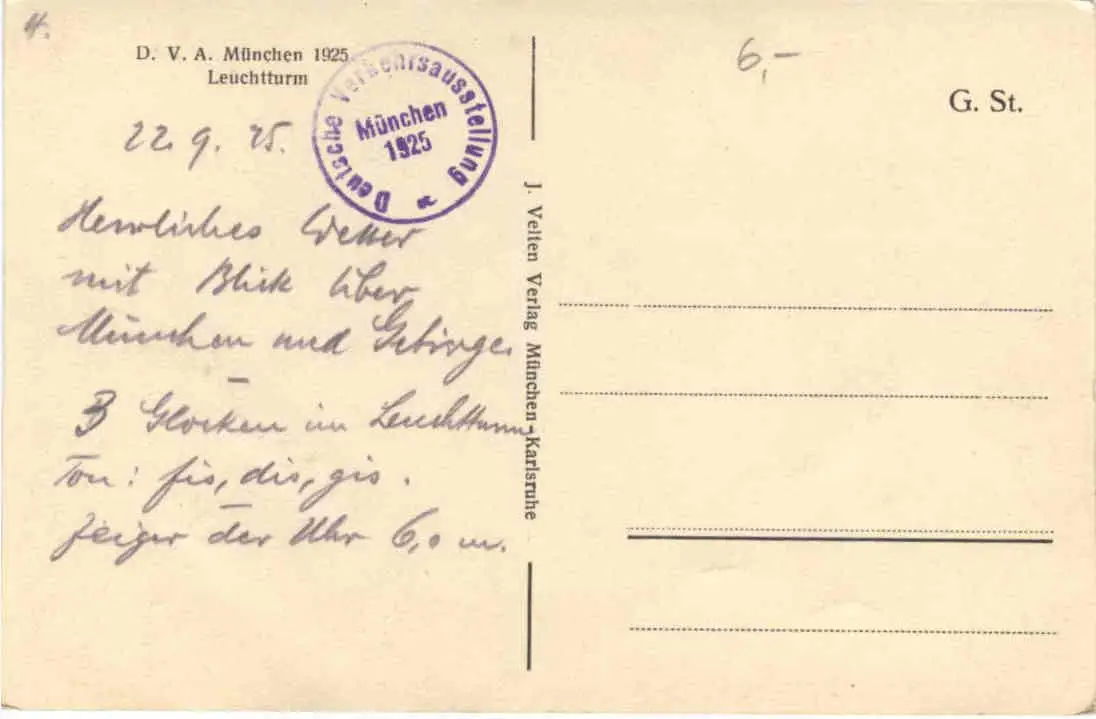 4.
D. V. A. München 1925
Leuchtturm
22. 9. 25.
Deutsche Verkehrsausstellung
München
1925
Herrliches Wetter
mit Blick über
München und Gebirge.
3 Glocken im Leuchtturm
Ton: fis, dis, gis.
Zeiger der Uhr 6,0 m.
J. Velten Verlag München-Karlsruhe
6,-
G. St.